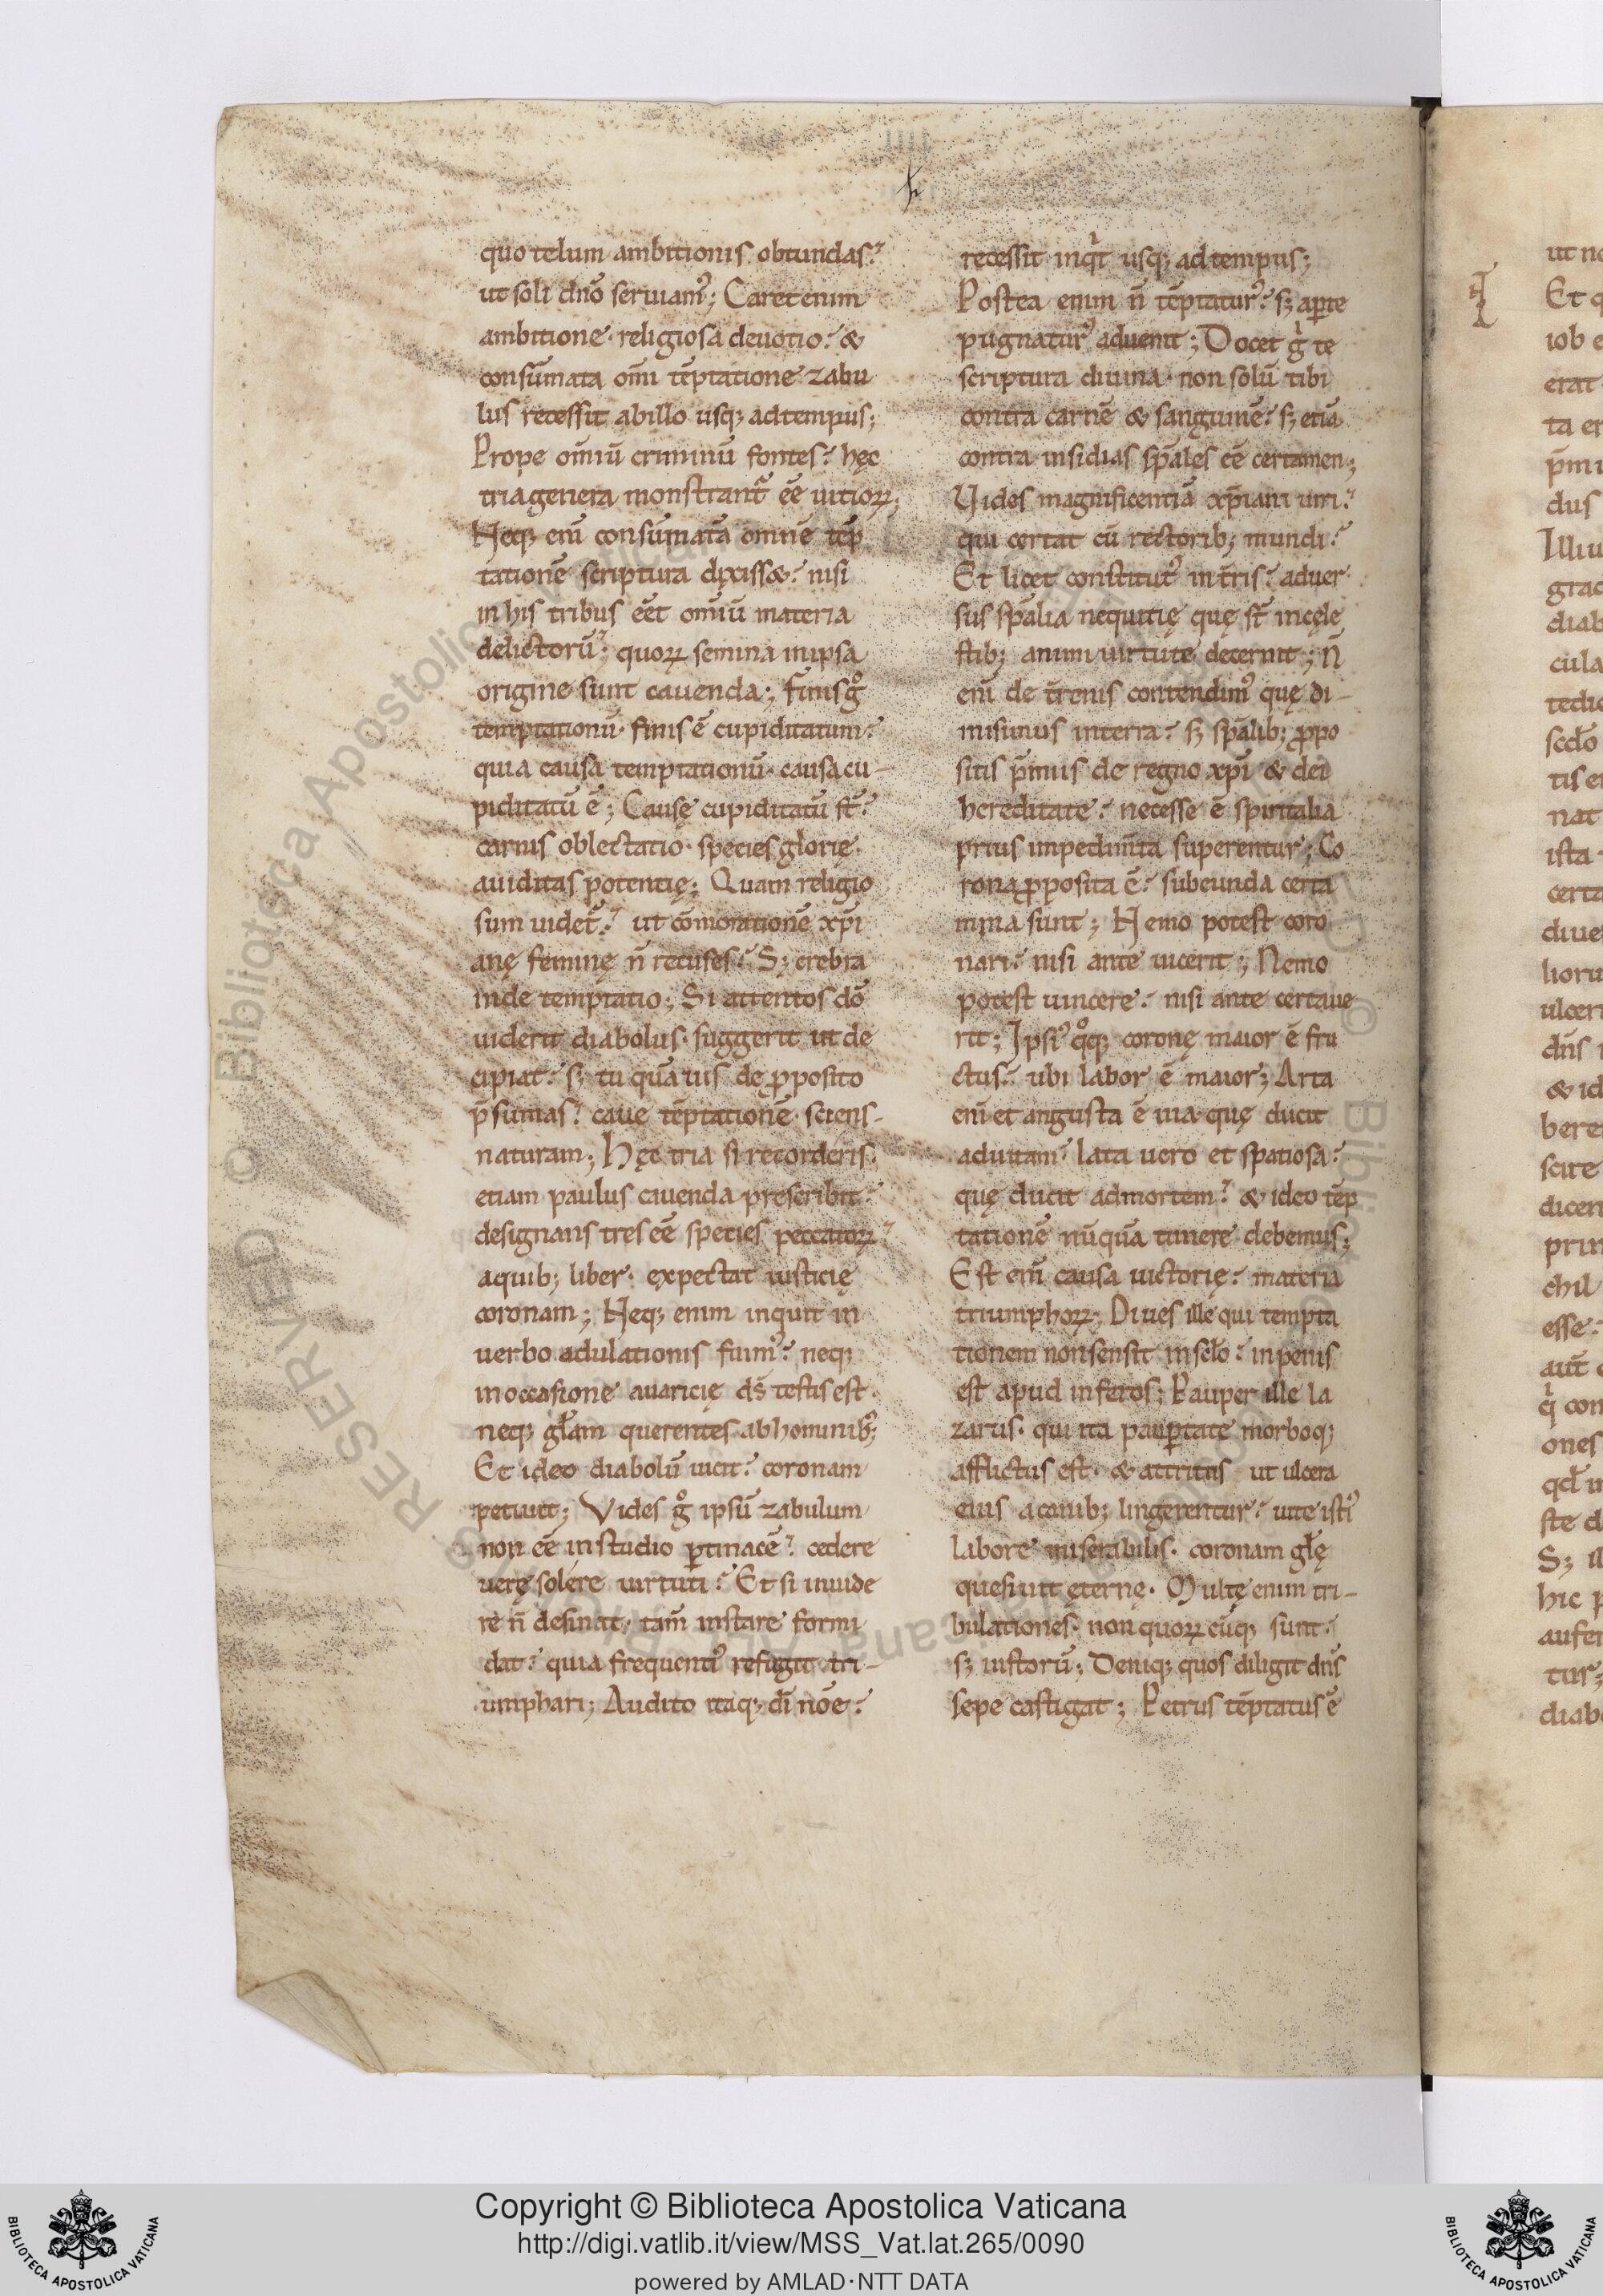 quo telum ambitionis obtundas?
ut soli dn̄o seruiam᷒; Caret enim
ambitione· religiosa deuotio? &
consūmata om̄i tēptatione zabu
lus recessit abillo usq; adtempus;
Prope om̄iū criminū fontes? hęc
tria genera monstrant᷑ eē uitioꝝ;
Neq; eni᷑ consūmatā omnē tēp
tationē scriptura dixiss&? nisi
in his tribus eēt om̄iū materia
delictorū? quoꝝ semina inipsa
origine sunt cauenda; finis gͦ
temptationū· finis ē cupiditatum?
quia causa temptationū· causa cu-
piditatū ē; Causę cupiditatū st̄?
carnis oblectatio· species glorię·
auiditas potentię; Quam religio
sum uidet᷑? ut cōmorationē xp̄i
anę feminę n̄ recuses? S; crebra
inde temptatio; Si attentos dō
uiderit diabolus· suggerit ut de
cipiat? s; tu quāuis de ꝓposito
p̄sumas? caue tēptationē· sciens
naturam; Hęc tria si recorderis·
etiam paulus cauenda prescribit?
designans tres eē species peccatoꝝ?
aquib; liber· expectat iusticię
coronam; Neq; enim inquit in
uerbo adulationis fuim᷒? neq;
inoccasione auaricię dꝰ testis est·
neq; gl̄am querentes abhominib;
Et ideo diabolū uicit? coronam
petiuit; Vides gͦ ipsū zabulum
non eē in studio ꝑtinacē? cedere
uerę solere uirtuti? Et si inuide
re n̄ desinat· tam̄ instare formi
dat? quia frequenti᷒ refugit tri-
umphari; Audito itaq; di᷑ nōe?
recessit inqͥt usq; adtempus;
Postea enim n̄ tēptatur᷒? s; aꝑte
pugnatur᷒ aduenit; Docet gͥ te
scriptura diuina· non solū tibi
contra carnē & sanguinē? s; etiā
contra insidias sp̄ales eē certamen;
Vides magnificentiā xp̄iani uiri?
qui certat cū rectorib; mundi?
Et licet constitut᷒ in t̄ris? aduer
sus sp̄alia nequitię quę st̄ incęle
stib; animi uirtute decernit; N̄
eni᷑ de t̄renis contendim᷒ quę di-
misimus interra? s; sp̄alib; ꝓpo
sitis p̄miis de regno xp̄i & dei
hereditate? necesse ē spiritalia
prius impedim̄ta superentur; Co
rona ꝓposita ē? subeunda certa
mina sunt; Nemo potest coro
nari? nisi ante uicerit; Nemo
potest uincere? nisi ante certaue
rit; Ipsi᷒ qͦq; coronę maior ē fru
ctus? ubi labor ē maior; Arta
eni᷑ et angusta ē uia quę ducit
aduitam? lata uero et spatiosa?
quę ducit admortem? & ideo tēp
tationē nūquā timere debemus;
Est eni᷑ causa uictorię? materia
triumphoꝝ; Diues ille qui tempta
tionem nonsensit insc̄lo? inpenis
est apud inferos; Pauper ille la
zarus· qui ita pauꝑtate morboq;
afflictus est· & attritus ut ulcera
eius acanib; lingerentur? uite isti᷒
labore miserabilis· coronam gl̄ę
quesiuit ęternę· Multę enim tri-
bulationes· non quoꝝ cūq; sunt·
s; iustorū; Deniq; quos diligit dn̄s
sepe castigat; Petrus tēptatus ē
ut
Et
iob
erat
ta
dus
Copyright © Biblioteca Apostolica Vaticana
http://digi.vatlib.it/view/MSS_Vat.lat.265/0090
powered by AMLAD·NTT DATA
BIBLIOTECA APOSTOLICA VATICANA
BIBLIOTECA APOSTOLICA VATICANA